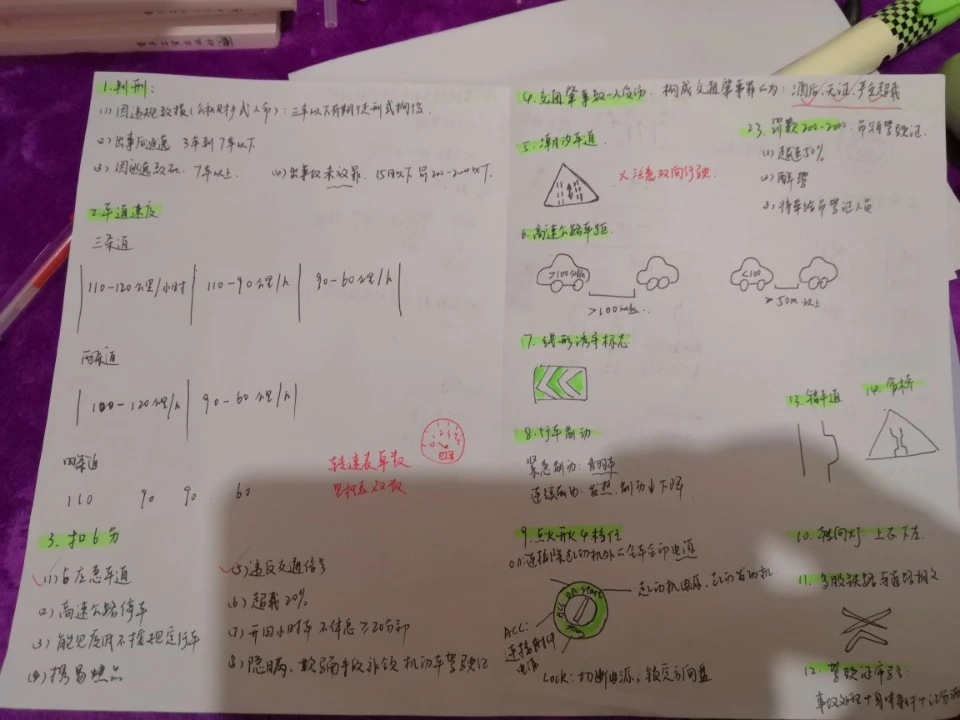 1.判刑:
(1) 因违规致损(公私财或人命):三年以下有期徒刑或拘役
(2) 出事后逃逸 3年到7年以下
(3) 因逃逸致死. 7年以上.
(4) 出事故未放牌. 15日以下
2.车道速度
三条道
110-120公里/小时 110-90公里/h 90-60公里/h
两条道
100-120公里/h 90-60公里/h
四条道
110 90 90 60
转速表单数
里程表双数
3. 扣6分
(1) 占应急车道
(2) 高速公路停车
(3) 能见度低不按规定行车
(4) 携易燃品
(5) 违反交通信号
(6) 超载20%
(7) 开四小时车不休息≥20分钟
(8) 隐瞒、欺骗手段补领机动车驾驶证
4. 交通肇事致一人重伤. 构成交通肇事罪行为: 酒后,无证,严重超载
5. 潮汐车道
× 注意双向行驶
23. 罚款200-2000. 吊销驾驶证.
(1) 超速50%
(2) 醉驾
(3) 将车给吊驾证人员
6. 高速公路车距
>100km/h <100
>100m以上. >50m以上
7. 线形诱导标志
8. 行车制动
紧急制动:
连续制动: 发热. 制动力下降
13. 错车道
14. 窄桥
9. 点火开关4档位
on: 连接除起动机外全车全部电源
ACC on start
起动机电源, 起动发动机
ACC:
连接附件
电源
Lock: 切断电源, 锁定方向盘
10. 转向灯: 上右下左
11. 多股铁路与道路相交
12. 驾驶证